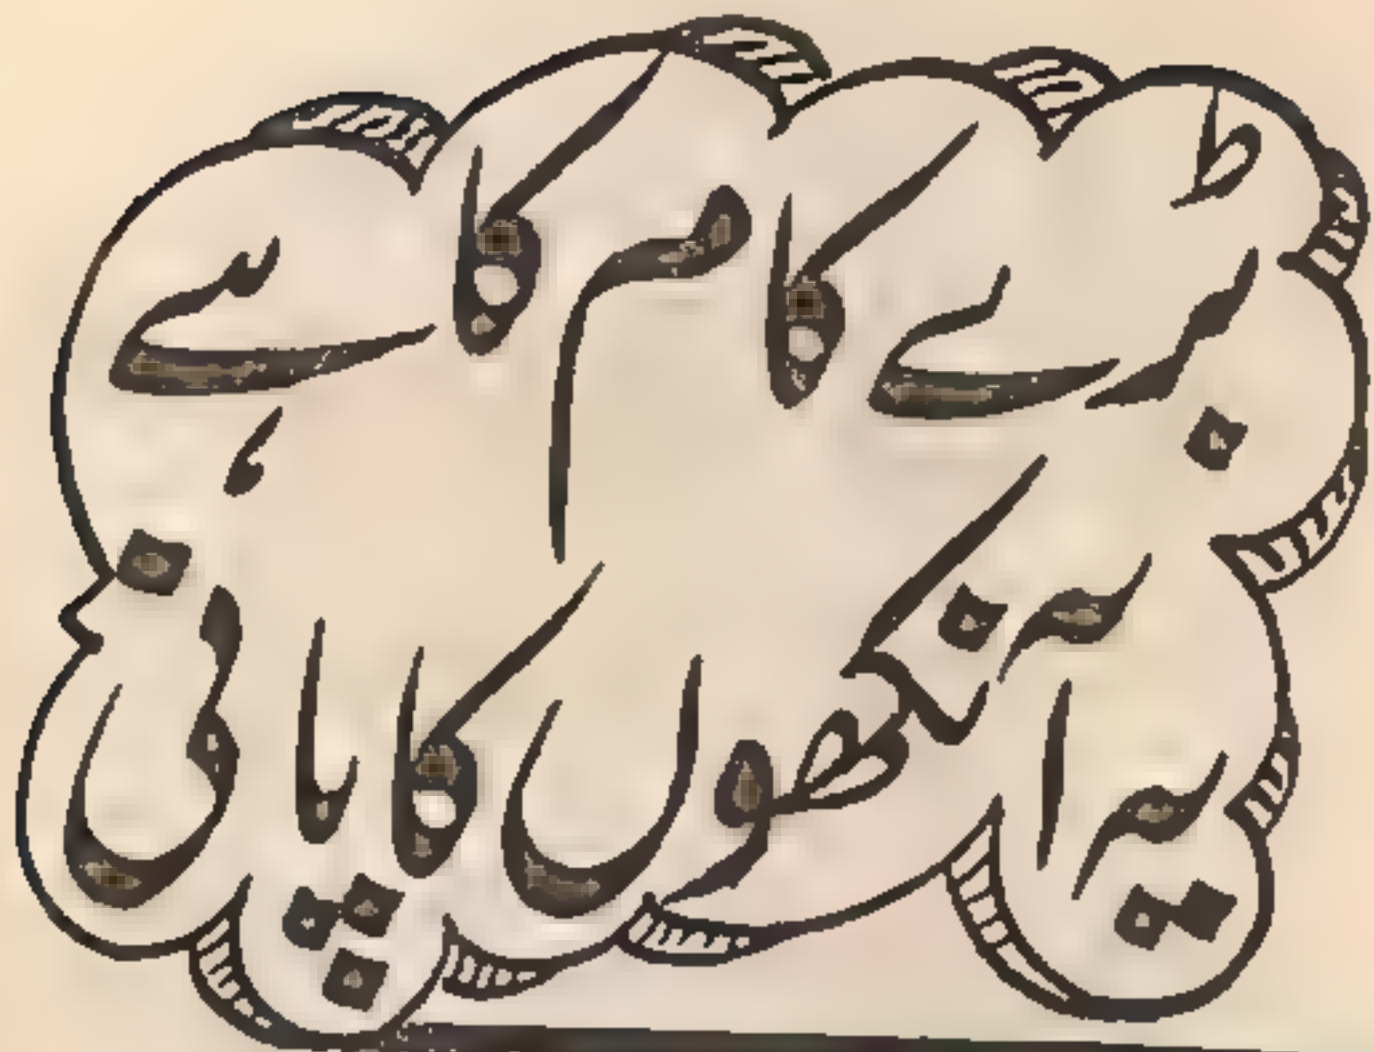 بڑے کام کا ہے
یہ آنکھوں کا پانی